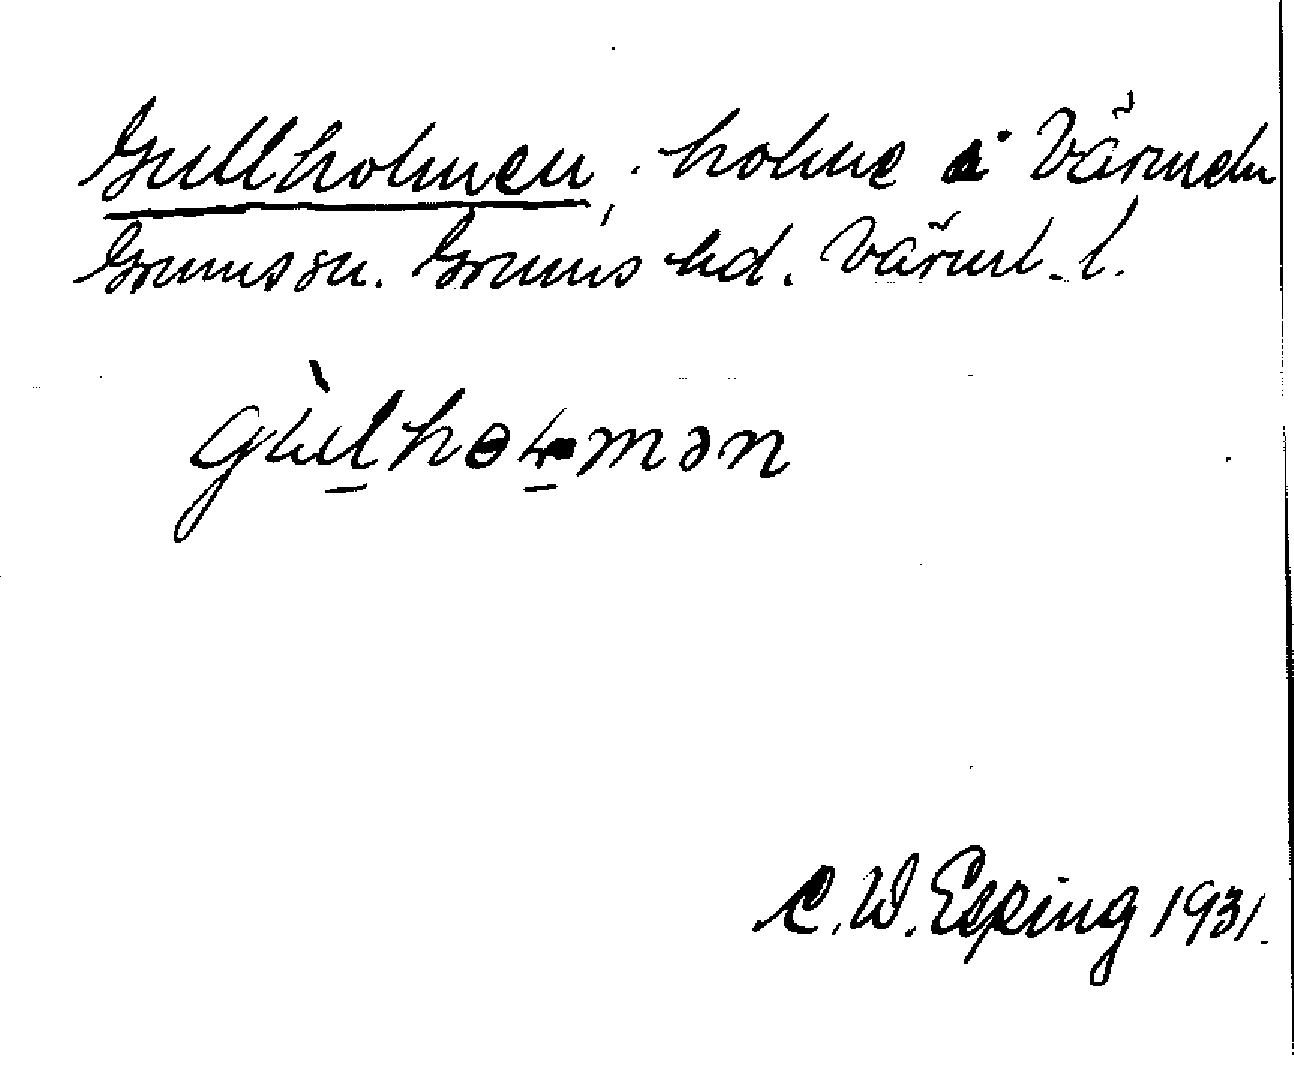 Gullholmen, holme i Värmeln
Grums sn. Grums hd. Värml. l.
gùlholmən
C. W. Esping 1931.